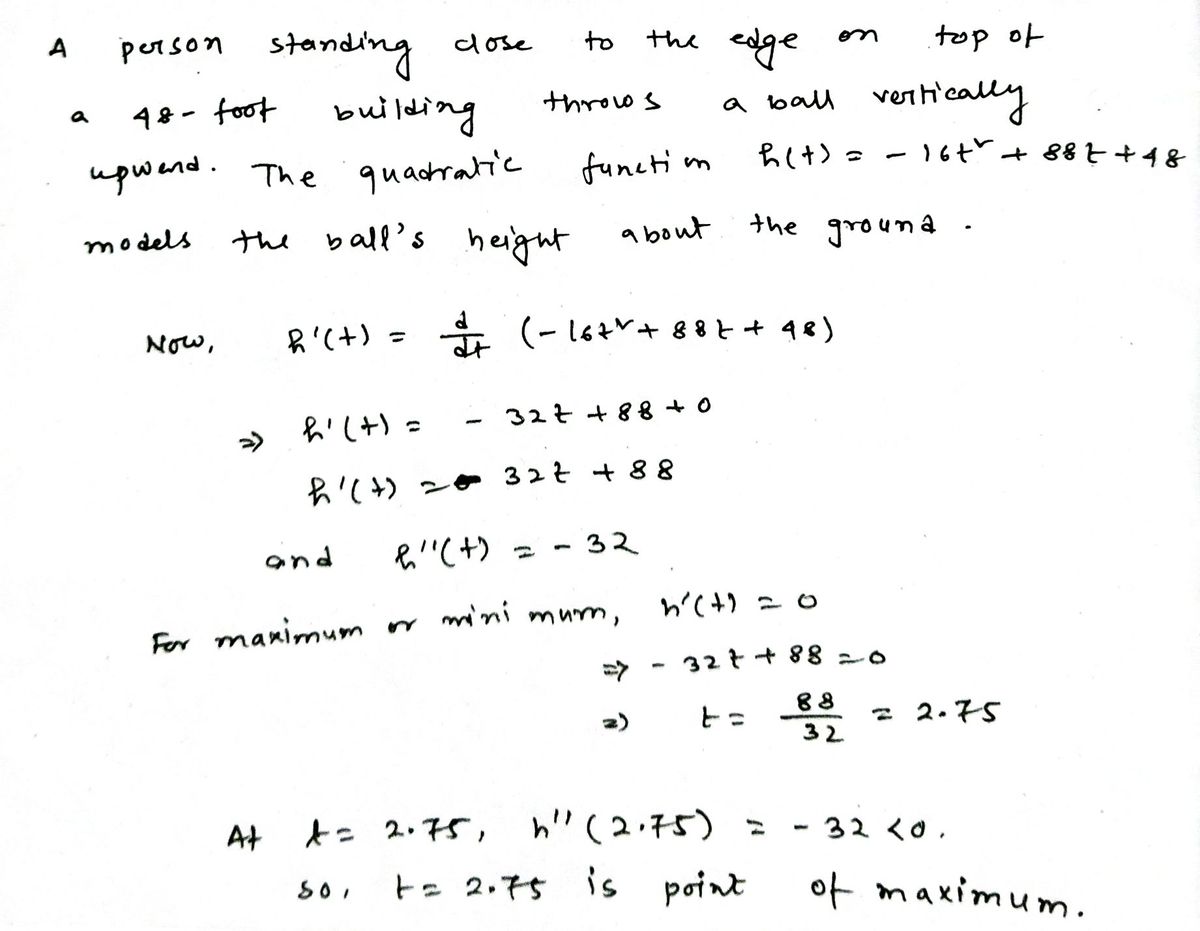 A person standing close to the edge on top of
a 48-foot building throws a ball vertically
upward. The quadratic function h(t) = -16t² + 88t + 48
models the ball's height about the ground.
Now, h'(t) = d/dt (-16t² + 88t + 48)
⇒ h'(t) = - 32t + 88 + 0
h'(t) = - 32t + 88
and h''(t) = - 32
For maximum or minimum, h'(t) = 0
⇒ - 32t + 88 = 0
⇒ t = 88/32 = 2.75
At t = 2.75, h''(2.75) = - 32 < 0.
so, t = 2.75 is point of maximum.